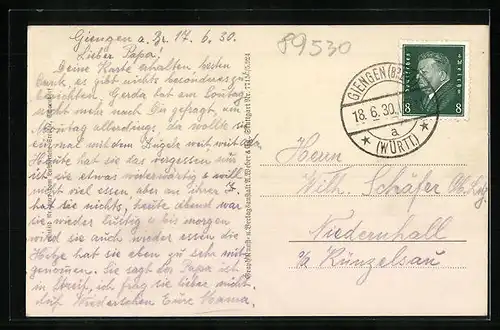 Giengen a. Br. 17. 6. 30.
Lieber Papa!
Deine Karte erhalten besten
Dank, es gibt nichts besonderes zu
berichten. Gerda hat am Sonntag
nicht mehr nach Du gefragt, am
Montag allerdings, da wollte sie
einmal mit dem
Heute hat sie das vergessen nur
ist sie etwas widerwärtig & will
nicht viel essen aber an ihrer
hat sie nichts, heute abend war
sie wieder lustig & bis morgen
wird sie auch wieder essen die
Hitze hat sie eben zu sehr mit
genommen. Sie sagt der Papa ist
in Streit, ich frag sie lieber nicht.
Auf Wiedersehen Eure Mama.
89530
Graphokunst- u. Verlagsanstalt A. Weber & Co. Stuttgart Nr.
Deutsches Reich
8 8
GIENGEN (BRZ)
18. 6. 30.
a
(WÜRTT.)
Herrn
Wilh. Schäfer
Niedernhall
o/a Künzelsau